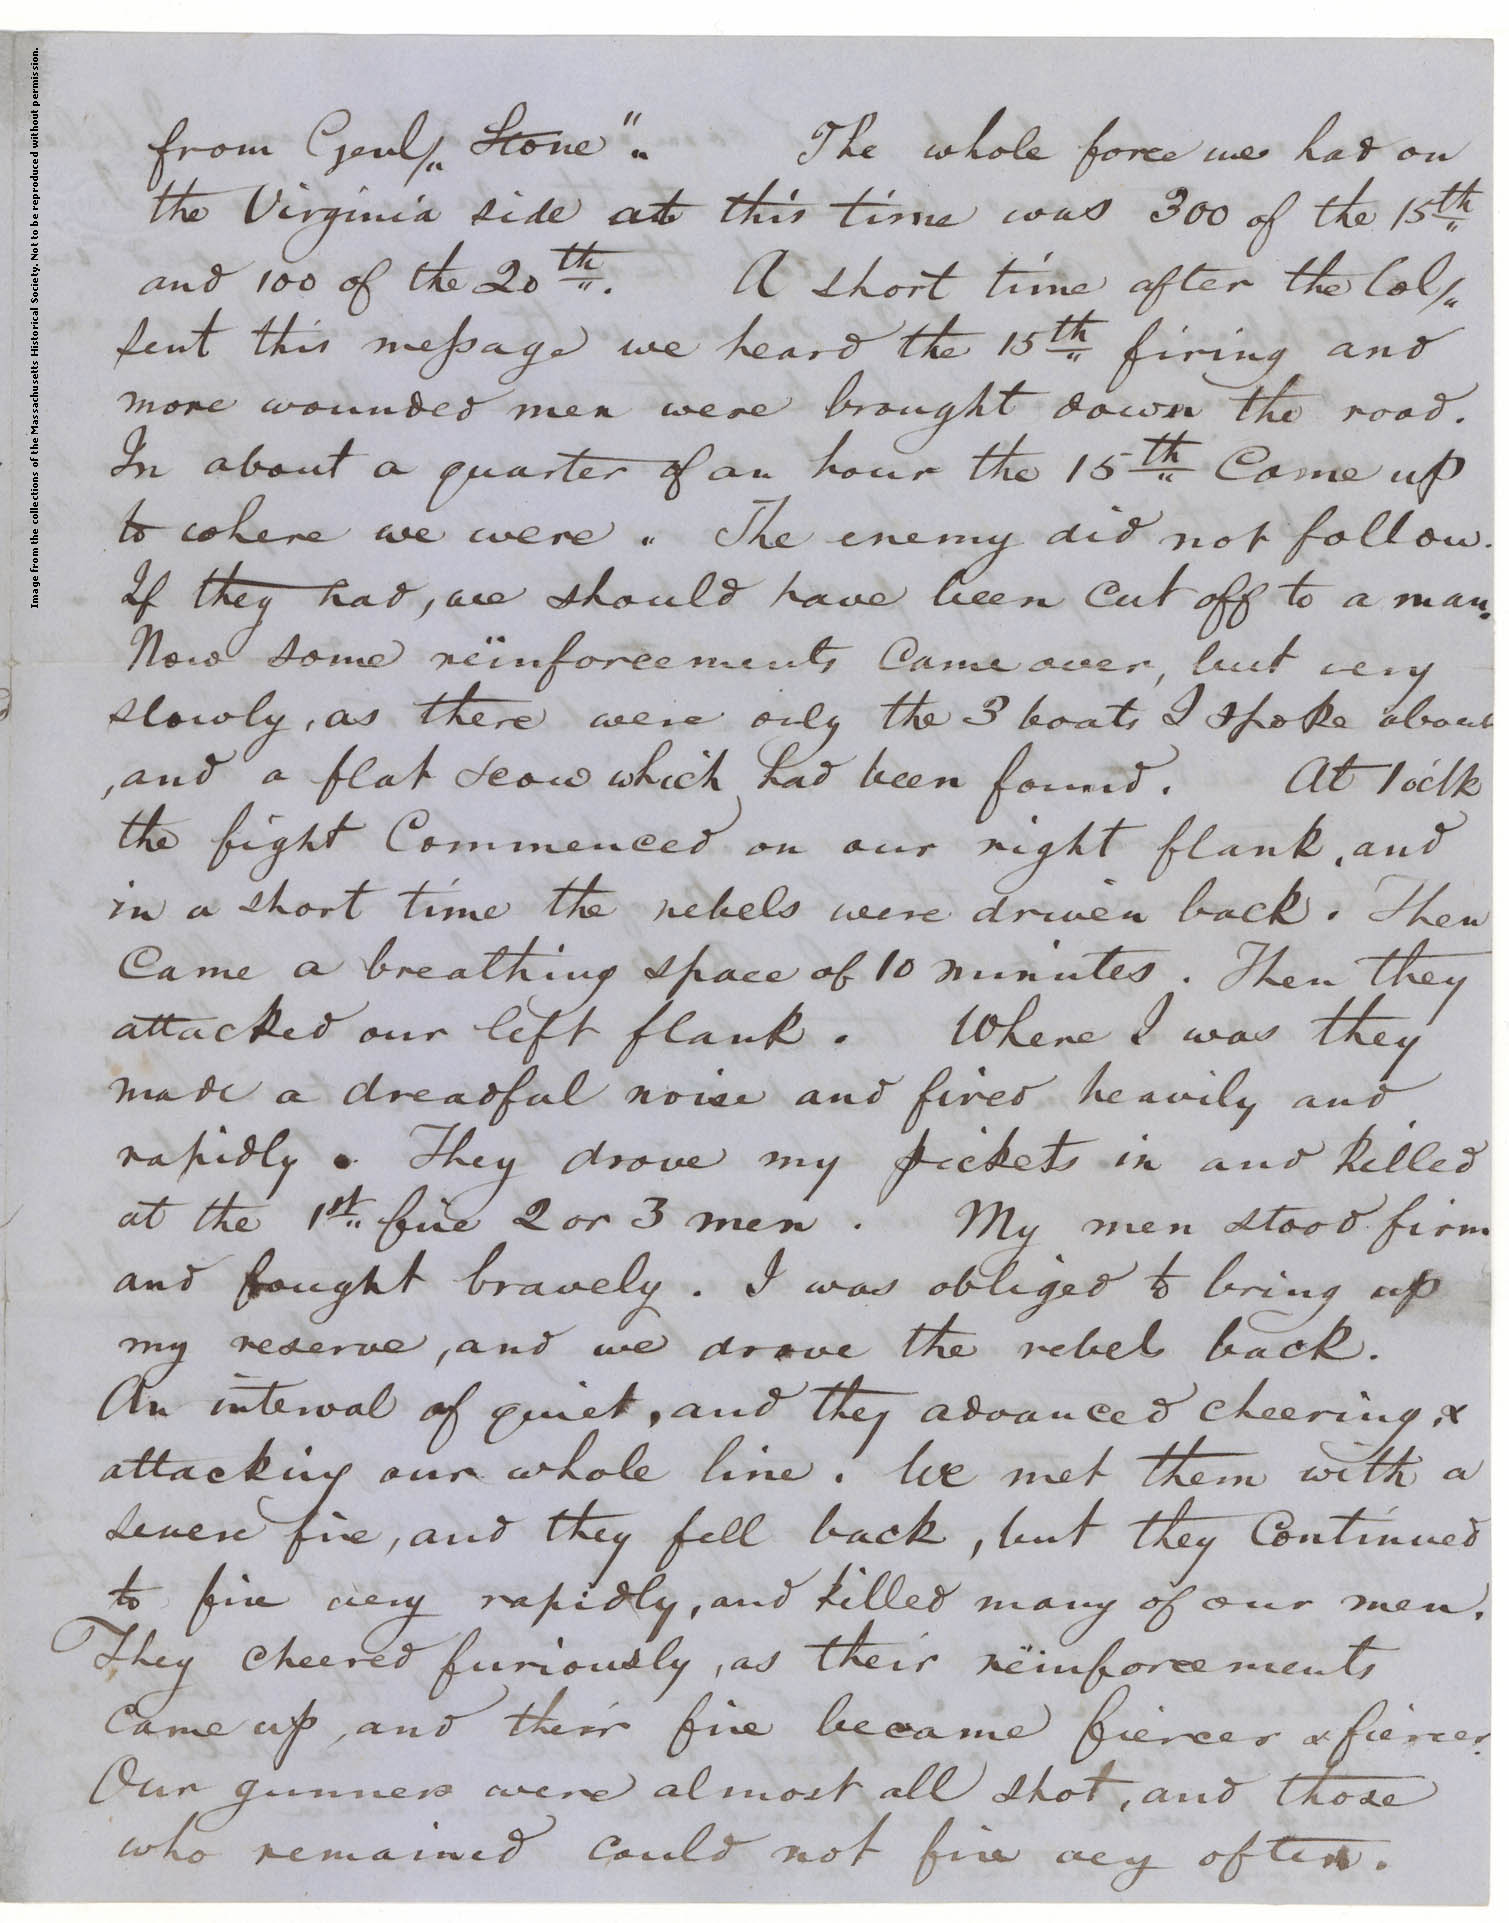 Image from the collections of the Massachusetts Historical Society. Not to be reproduced without permission.
from Genl/" Stone". The whole force we had on
the Virginia side at this time was 300 of the 15th
and 100 of the 20th. A short time after the Col/"
sent this message we heard the 15th firing and
more wounded men were brought down the road.
In about a quarter of an hour the 15th Came up
to where we were. The enemy did not follow.
If they had, we should have been cut off to a man.
Now some reïnforcements Came over, but very
slowly, as there were only the 3 boats I spoke about
, and a flat scow which had been found. At 1 o'clk
the fight Commenced on our right flank, and
in a short time the rebels were driven back. Then
Came a breathing space of 10 minutes. Then they
attacked our left flank. Where I was they
made a dreadful noise and fired heavily and
rapidly. They drove my pickets in and killed
at the 1st fire 2 or 3 men. My men stood firm
and fought bravely. I was obliged to bring up
my reserve, and we drove the rebels back.
An interval of quiet, and they advanced cheering &
attacking our whole line. We met them with a
severe fire, and they fell back, but they Continued
to fire very rapidly, and killed many of our men.
They cheered furiously, as their reïnforcements
Came up, and their fire became fiercer & fiercer.
Our gunners were almost all shot, and those
who remained could not fire very often.